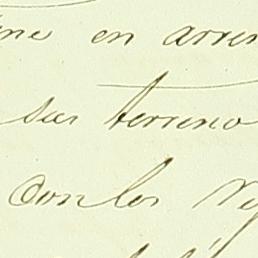 ne en arren
sus terreno
con los